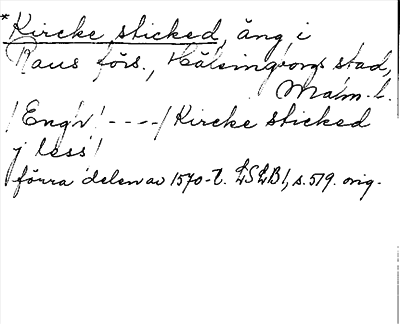 *Kircke sticked, äng i
Raus förs., Hälsingborgs stad,
Malm. l.
/Engh/ ----/Kircke sticked
j less/
förra delen av 1570-t. LSLB1, s. 579. orig.